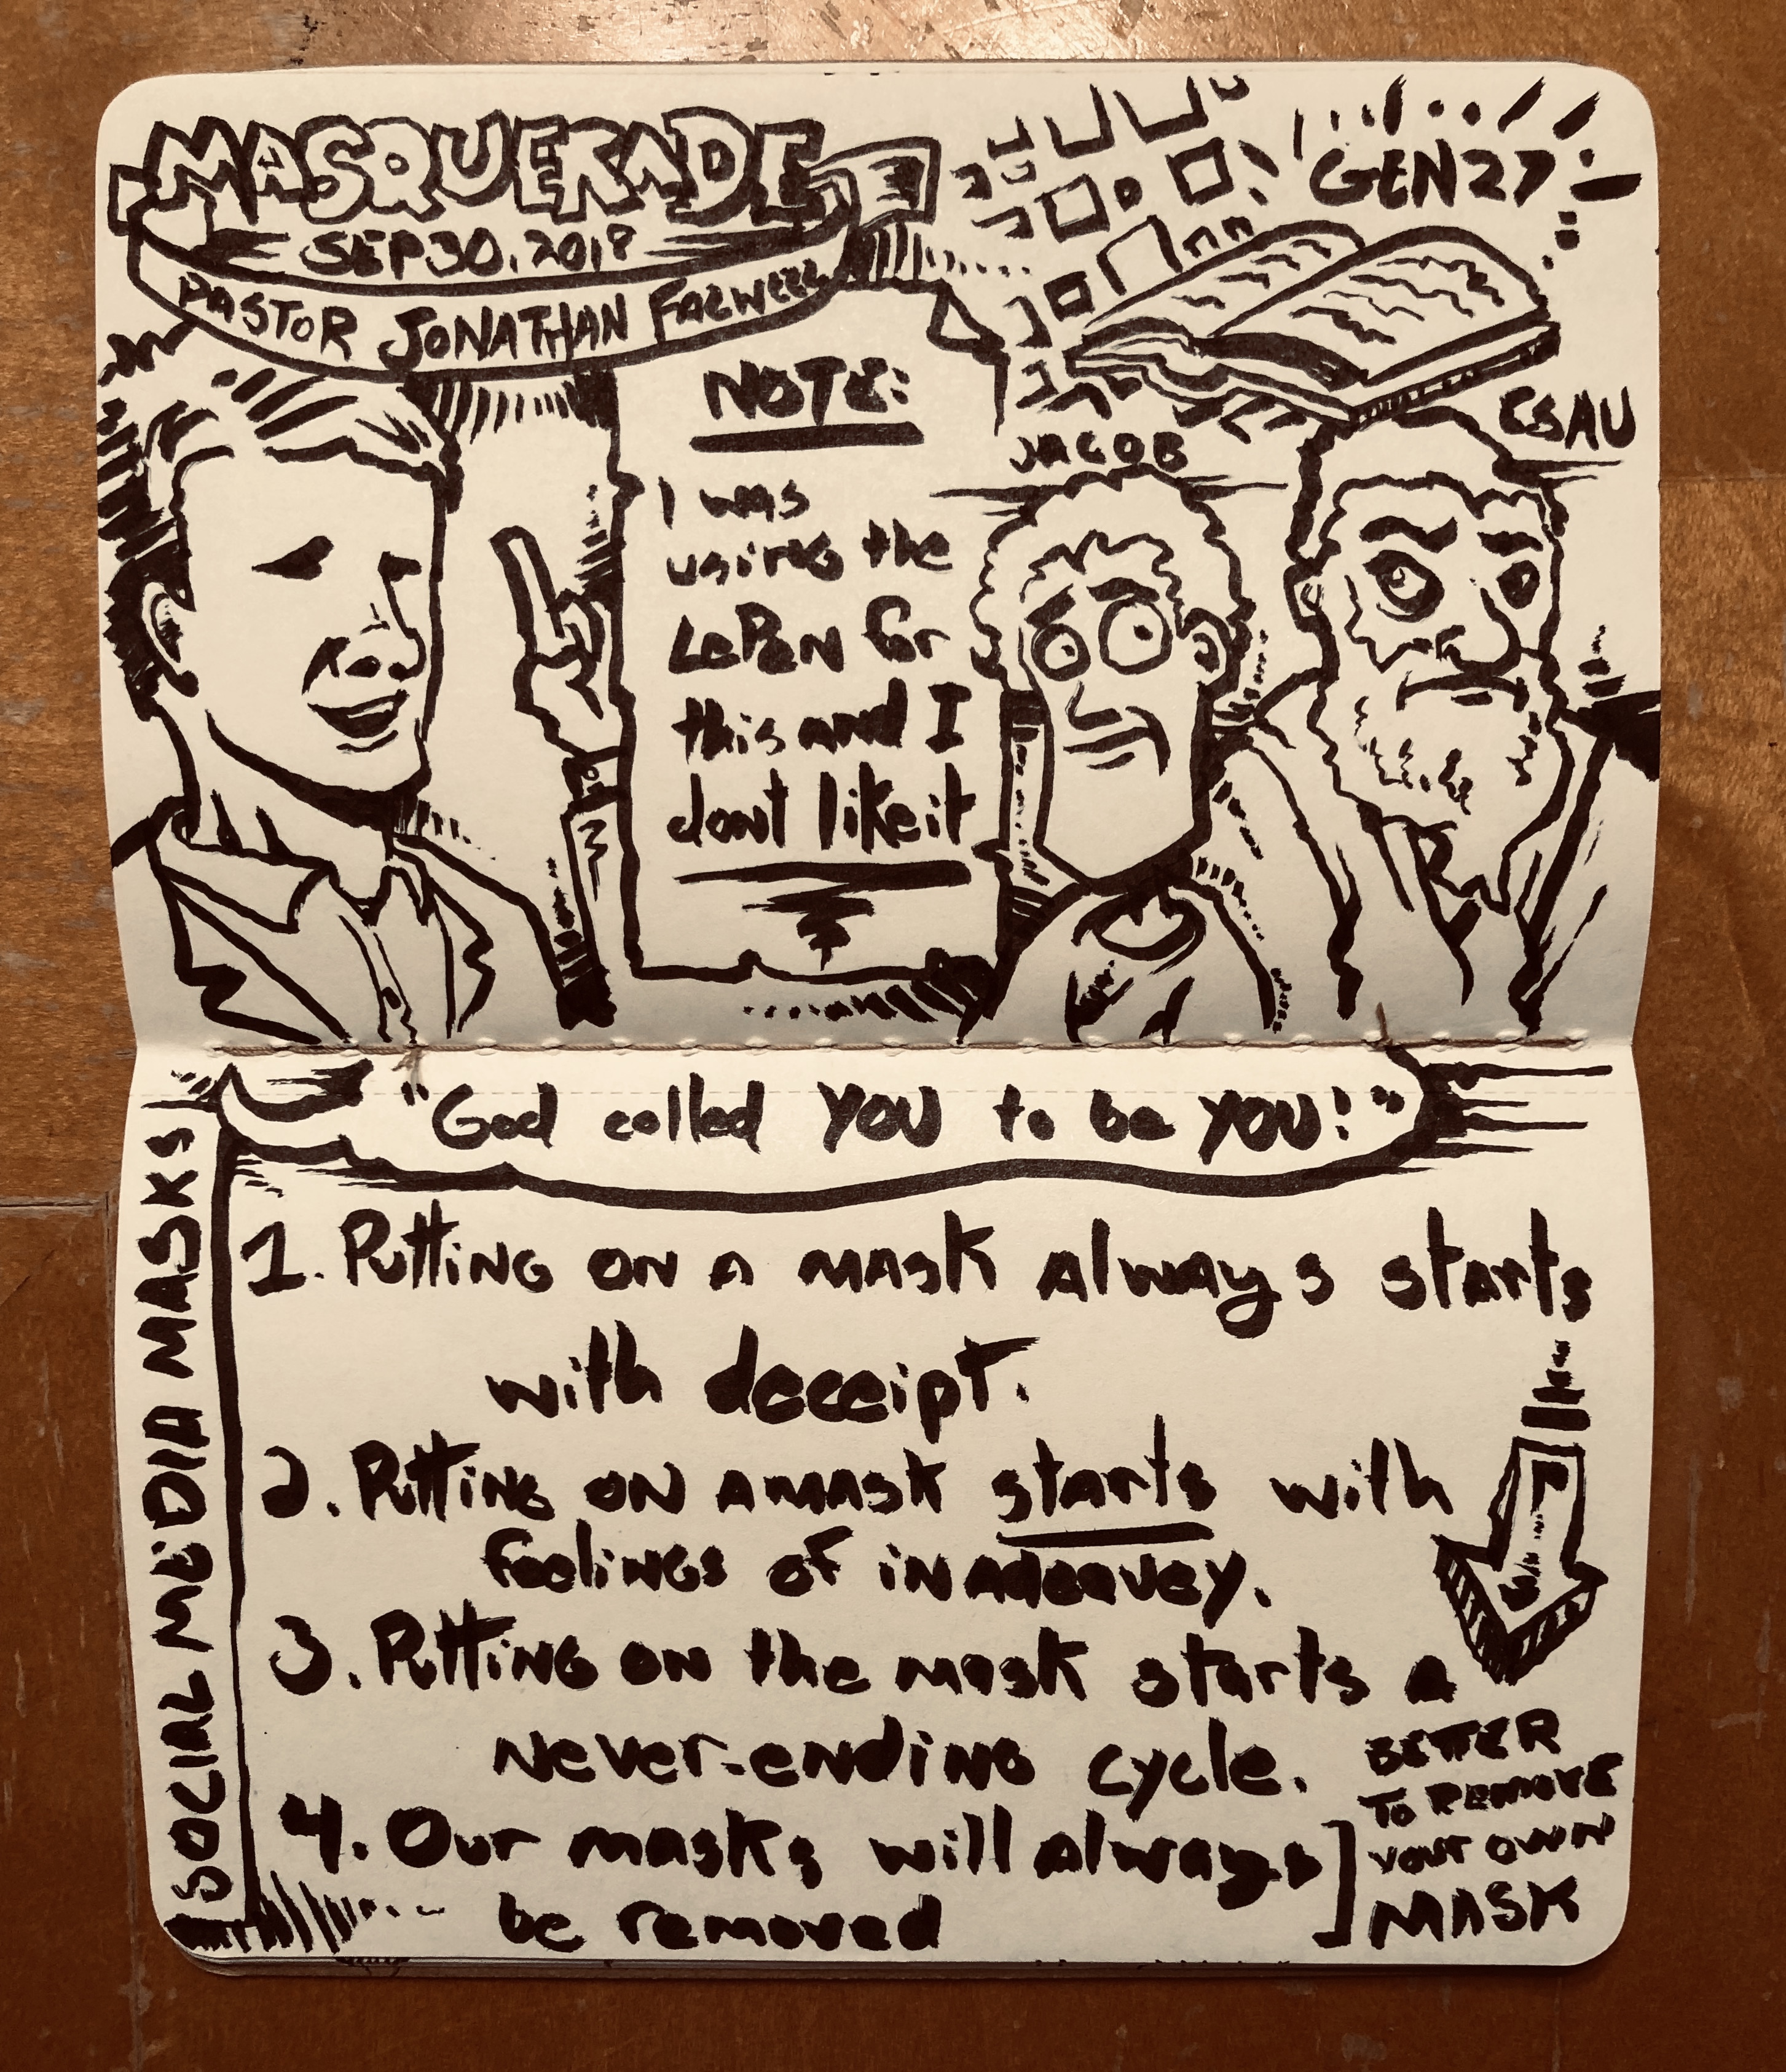 MASQUERADE
SEP 30, 2018
PASTOR JONATHAN FALWELL
GEN 27
NOTE:
I was
using the
LePen for
this and I
dont like it
JACOB
ESAU
"God called YOU to be YOU!"
SOCIAL MEDIA MASKS
1. Putting on a mask always starts
with deceipt.
2. Putting on a mask starts with
feelings of
3. Putting on the mask starts a
never-ending cycle.
4. Our masks will always
be removed
BETTER
TO REMOVE
YOUR OWN
MASK